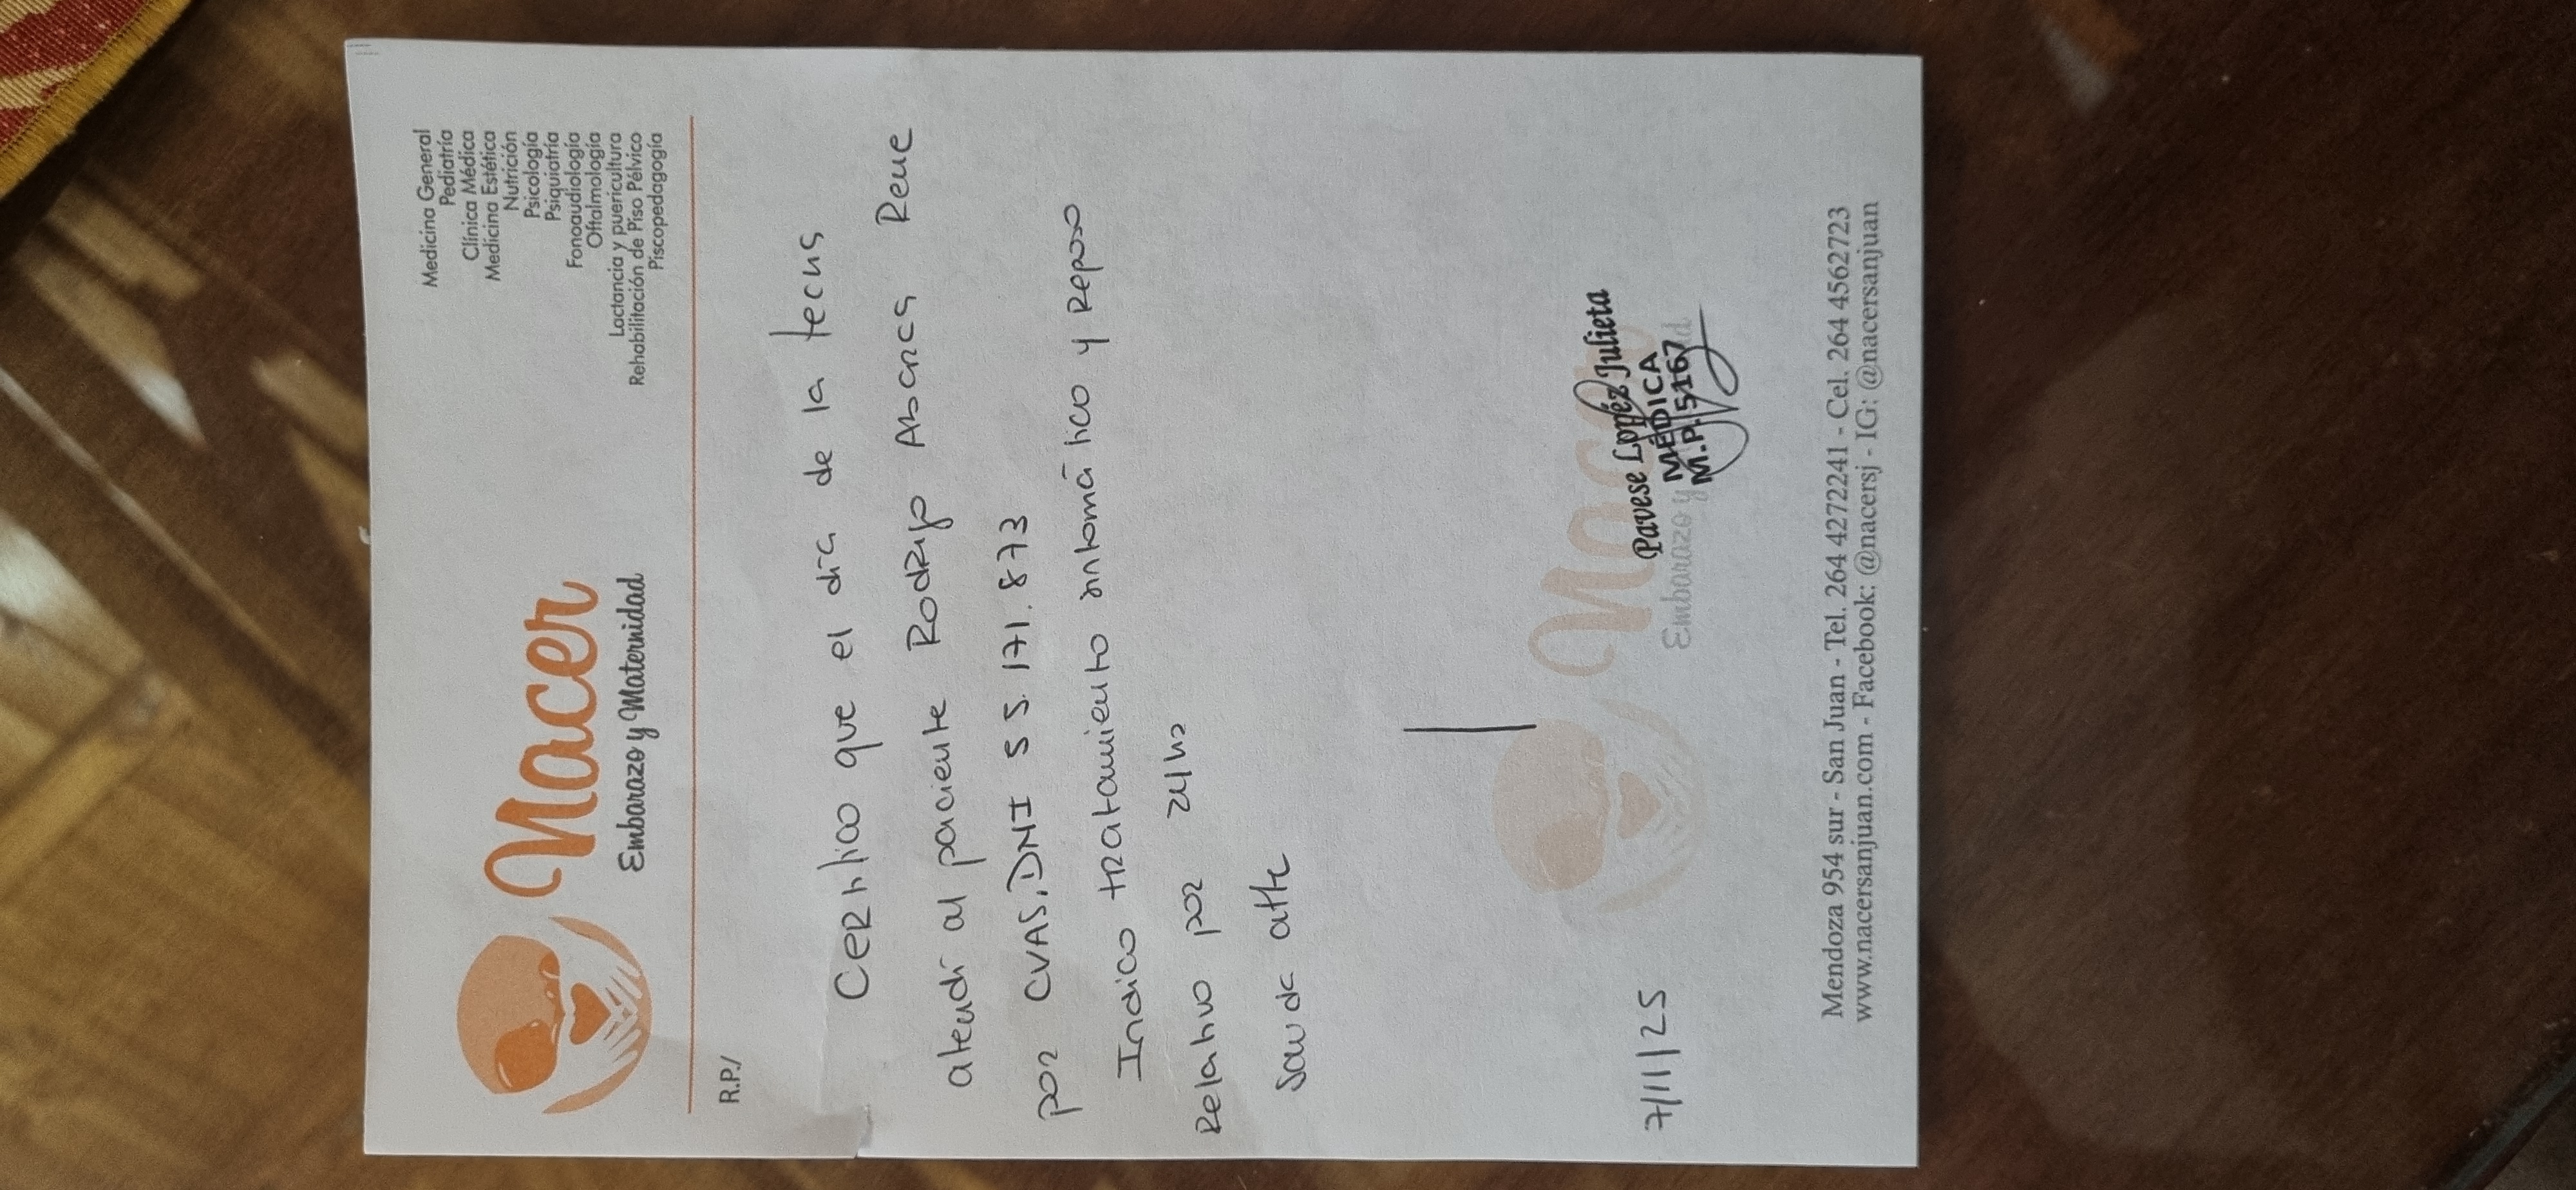 Nacer
Embarazo y Maternidad
Medicina General
Pediatría
Clínica Médica
Medicina Estética
Nutrición
Psicología
Psiquiatría
Fonoaudiología
Oftalmología
Lactancia y puericultura
Rehabilitación de Piso Pélvico
Piscopedagogía
R.P./
Certifico que el día de la fecha
atendí al paciente Rodrigo Abarca Rene
por CVAS, DNI 55.171.873
Indico tratamiento sintomático y Reposo
Relativo por 24hs
Saluda atte
7/11/25
Nacer
Embarazo y
Pavese Lopéz Julieta
MÉDICA
M.P. 5167
Mendoza 954 sur - San Juan - Tel. 264 4272241 - Cel. 264 4562723
www.nacersanjuan.com - Facebook: @nacersj - IG: @nacersanjuan